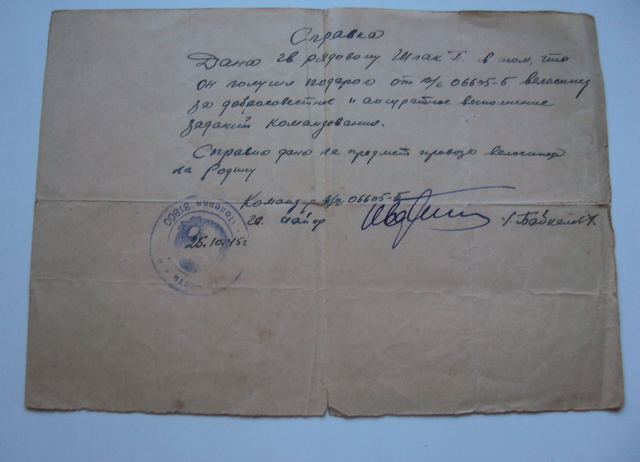 Справка
Дана гв рядовому Шпак Г. в том, что
он получил подарою от в/ч 06605-Б велосипед
за добросовестное и аккуратное выполнение
заданий командования.
Справка дана на предмет провоза велосипеда
на Родину
Командир в/ч 06605-Б
гв. майор
/Байкалов/
25.10.45г
Полевая 81803
часть